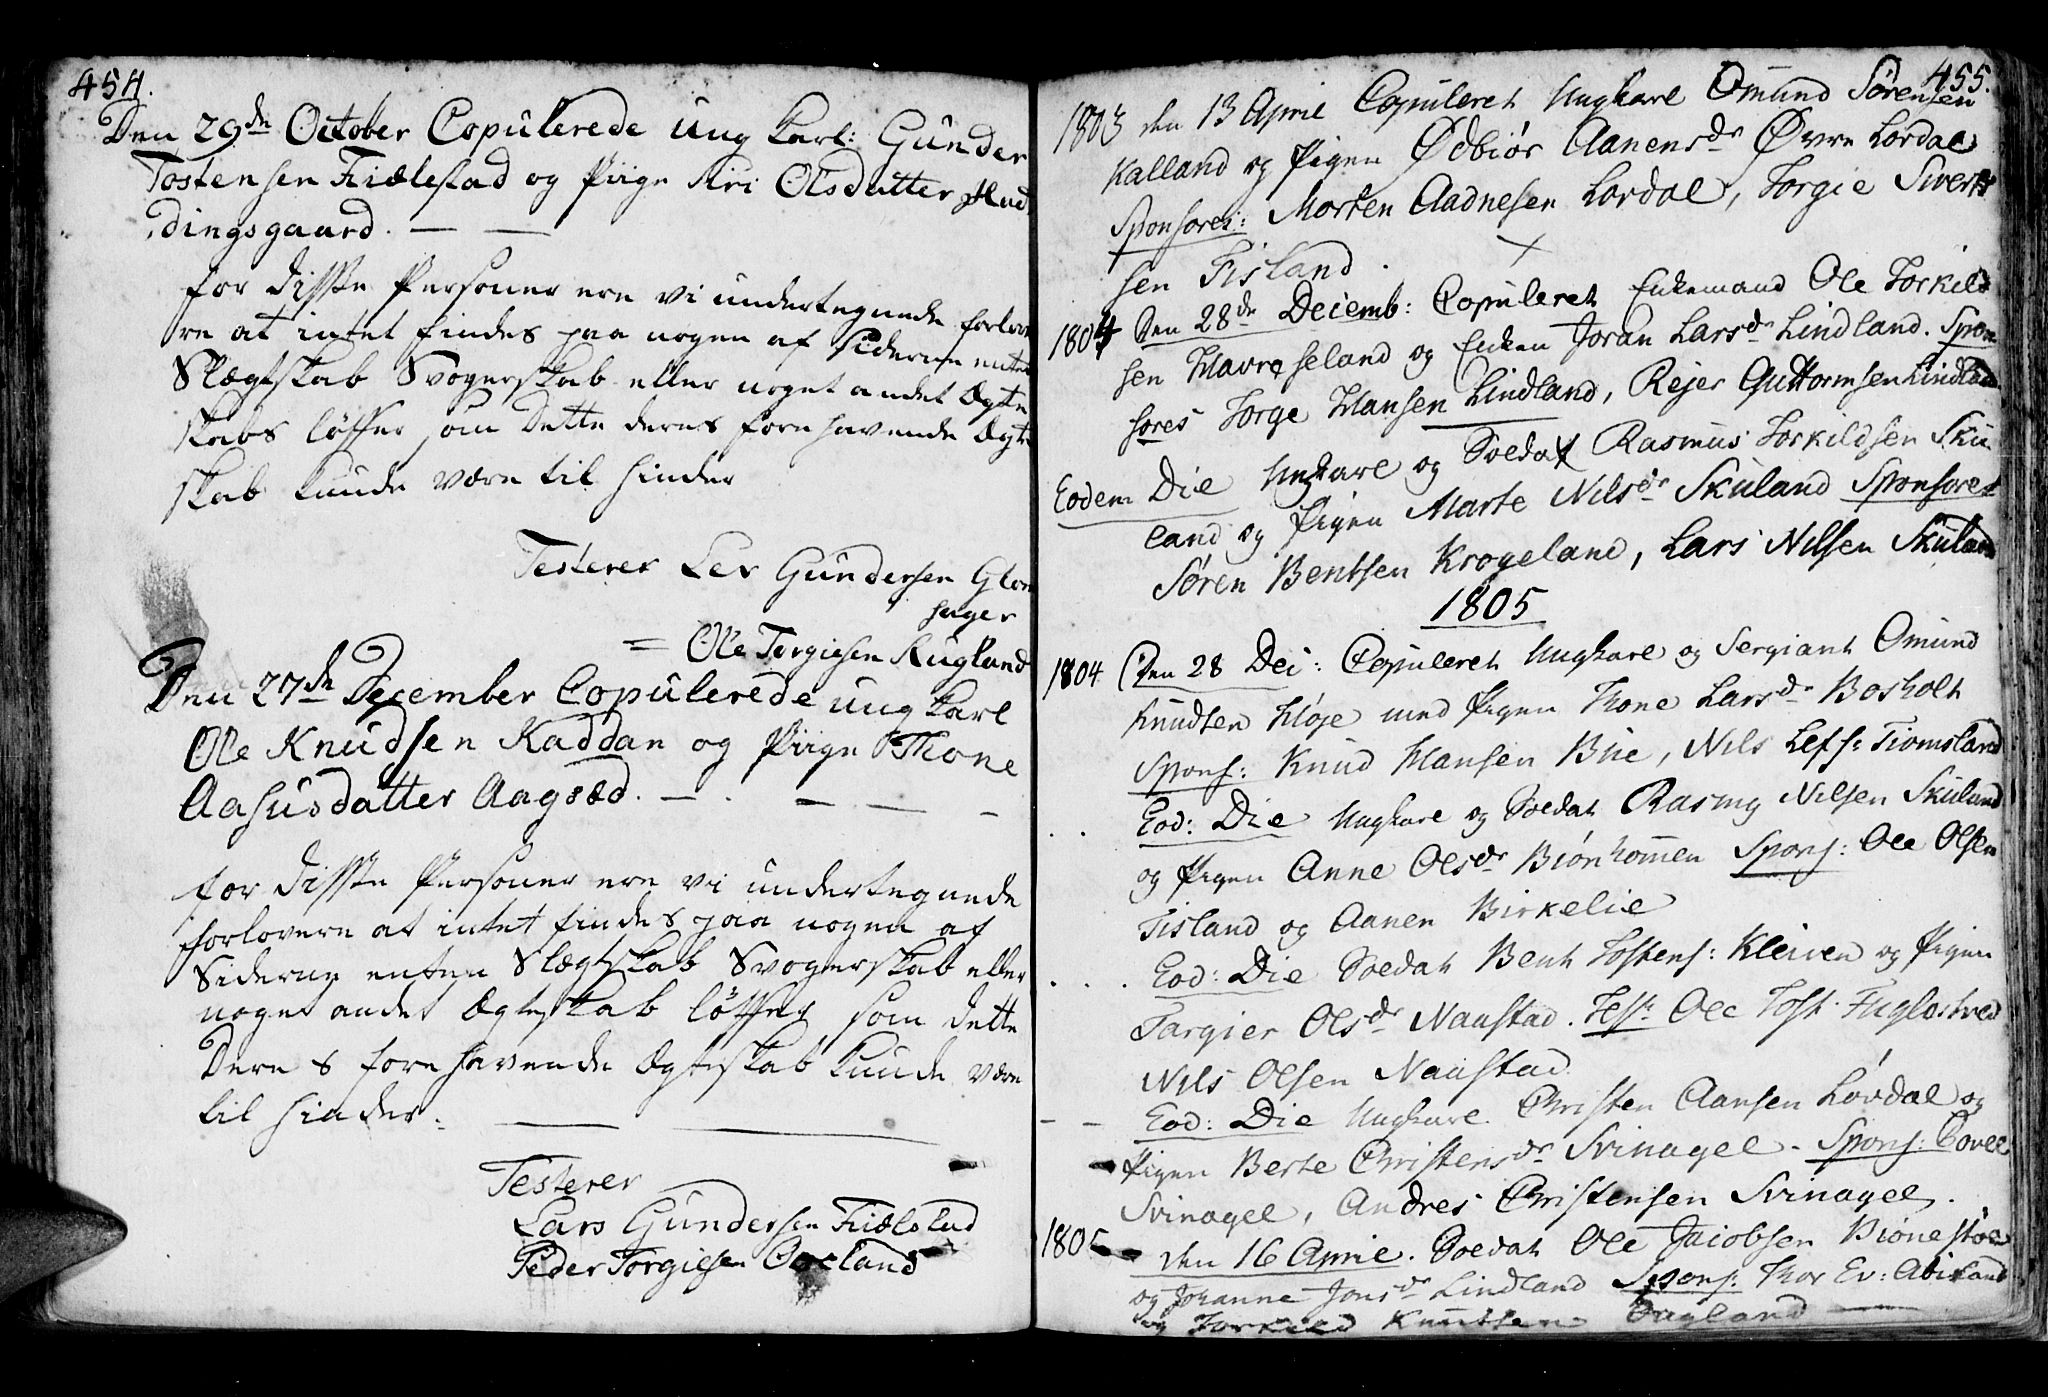 454.
Den 29de October Copulerede ung Karl: Gunder
Tostensen Fiælestad og Piige Siri Olsdatter Had
dingsgaard. — —
for disse Personer ere vi undertegnede forlove
re at intet findes paa nogen af Siderne enten
Slægtskab Svogerskab eller noget andet Ægte
skabs løffter som dette deres forehavende Ægte
skab kunde være til hinder
Testerer Lev Gundersen
hager
= Ole Torgiesen Rugland
Den 27de December Copulerede ung Karl
Ole Knudsen Kaddan og Piige Thone
Aasusdatter Aagsæd. — . — — –
for disse Personer ere vi undertegnede
forlovere at intet findes paa nogen af
Siderne enten Slægtskab Svogerskab eller
noget andet Ægteskab løffter som dette
Deres forehavende Ægteskab kunde være
til hinder.
Testerer
Lars Gundersen Fiælstad
Peder Torgiesen
455.
1803 den 13 April Copuleret Ungkarl Omund Sørensen
Kalland og Pigen Ødbiør Aanensdr Øvre Lordal
Sponsores: Morten Aadnesen Lordal, Torgie Sivert
sen Fisland.
1804 Den 28de Deiemb: Copuleret Enkemand Ole Torkild
sen Havreseland og Enken Joran Larsdr Lindland. Spon
sores Torge Hansen Lindland, Rejer Guttormsen Lindland
Eodem Die Ungkarl og Soldat Rasmus Torkildsen Sku
land og Pigen Marte Nilsdr Skuland Sponsores
Søren Bentsen Krogeland, Lars Nilsen Skuland
1805
1804 Den 28 Dei: Copuleret Ungkarl og Sergiant Omund
Knudsen Høje med Pigen Thone Larsdr Bosholt
Spons: Knud Hansen Bue, Nils Lefs: Tiomsland
Eod: Die Ungkarl og Soldat Rasmg Nilsen Skuland
og Pigen Anne Olsdr Biørkommen Spons: Ole Olsen
Fisland og Aanen Birkelie
Eod: Die Soldat Bent Tostens: Kleiven og Pigen
Targier Olsdr Naustad. Test: Ole Tost. Fuglestved
Nils Olsen Naustad
Eod: Die Ungkarl Christen Aansen Lovdal og
Pigen Berte Christensdr Svinagel. Spons:
Svinagel, Andres Christensen Svinagel.
1805 den 16 April. Soldat Ole Jaiobsen Bionestøl
og Johanne Jonsdr Lindland Spons: Thor Ev: Abiland
og Torkild Knutsen Dagland